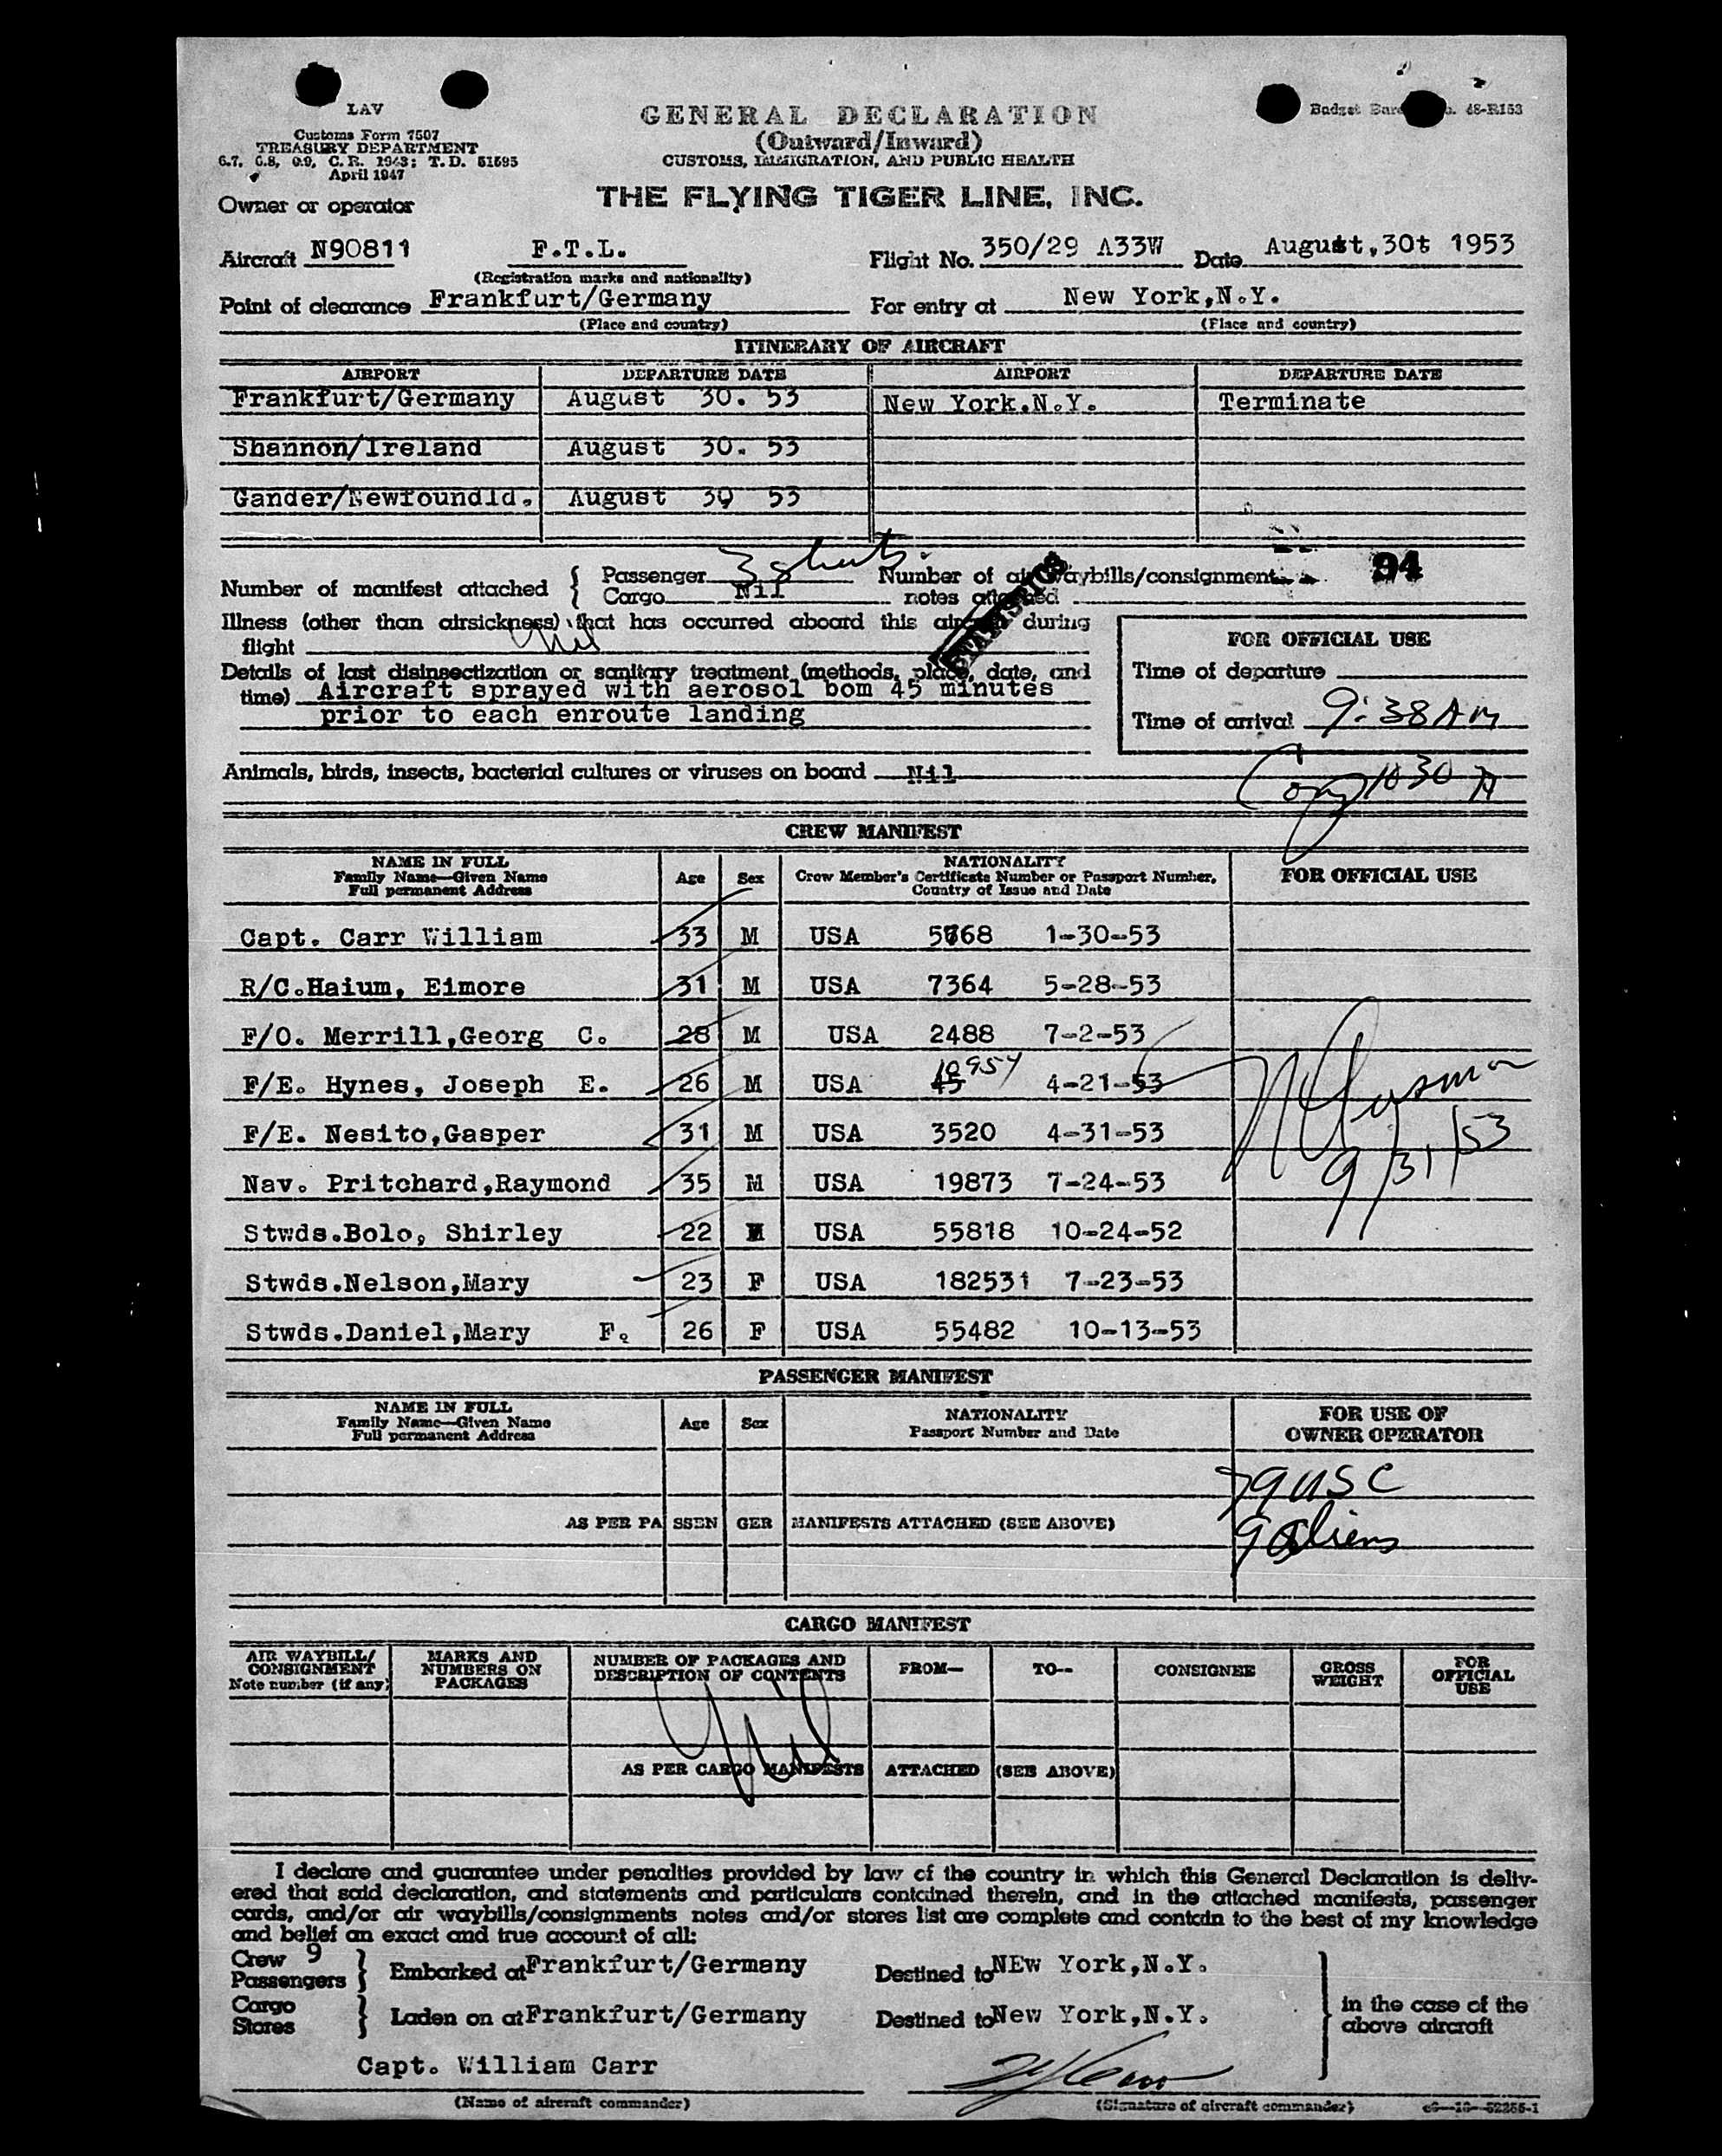 LAV
Customs Form 7507
TREASURY DEPARTMENT
6.7, 6.8, 6.9, C. R. 1943; T. D. 51595
April 1947
GENERAL DECLARATION
(Outward/Inward)
CUSTOMS, IMMIGRATION, AND PUBLIC HEALTH
48-R153
THE FLYING TIGER LINE, INC.
Owner or operator
Aircraft N90811 F.T.L. Flight No. 350/29 A33W Date August,30t 1953
(Registration marks and nationality)
Point of clearance Frankfurt/Germany For entry at New York,N.Y.
(Place and country) (Place and country)
ITINERARY OF AIRCRAFT
AIRPORT DEPARTURE DATE AIRPORT DEPARTURE DATE
Frankfurt/Germany August 30. 53 New York.N.Y. Terminate
Shannon/Ireland August 30. 53
Gander/Newfoundld. August 30 53
Number of manifest attached { Passenger 3 sheets Number of air waybills/consignment 94
Cargo Nil notes attached
STATISTICS
Illness (other than airsickness) that has occurred aboard this aircraft during
flight Nil
FOR OFFICIAL USE
Details of last disinsectization or sanitary treatment (methods, place, date, and
time) Aircraft sprayed with aerosol bom 45 minutes
prior to each enroute landing
Time of departure
Time of arrival 9:38 AM
Animals, birds, insects, bacterial cultures or viruses on board Nil
1030 A
CREW MANIFEST
NAME IN FULL
Family Name—Given Name
Full permanent Address
Age Sex
NATIONALITY
Crew Member's Certificate Number or Passport Number,
Country of Issue and Date
FOR OFFICIAL USE
Capt. Carr William 33 M USA 5768 1-30-53
R/C.Haium, Eimore 31 M USA 7364 5-28-53
F/O. Merrill,Georg C. 28 M USA 2488 7-2-53
F/E. Hynes, Joseph E. 26 M USA 10954 4-21-53
F/E. Nesito,Gasper 31 M USA 3520 4-31-53
9/31/53
Nav. Pritchard,Raymond 35 M USA 19873 7-24-53
Stwds.Bolo, Shirley 22 USA 55818 10-24-52
Stwds.Nelson,Mary 23 F USA 182531 7-23-53
Stwds.Daniel,Mary F. 26 F USA 55482 10-13-53
PASSENGER MANIFEST
NAME IN FULL
Family Name—Given Name
Full permanent Address
Age Sex
NATIONALITY
Passport Number and Date
FOR USE OF
OWNER OPERATOR
79 USC
AS PER PASSENGER MANIFESTS ATTACHED (SEE ABOVE)
9 aliens
CARGO MANIFEST
AIR WAYBILL/
CONSIGNMENT
Note number (if any)
MARKS AND
NUMBERS ON
PACKAGES
NUMBER OF PACKAGES AND
DESCRIPTION OF CONTENTS
FROM— TO-- CONSIGNEE
GROSS
WEIGHT
FOR
OFFICIAL
USE
Nil
AS PER CARGO MANIFESTS ATTACHED (SEE ABOVE)
I declare and guarantee under penalties provided by law of the country in which this General Declaration is deliv-
ered that said declaration, and statements and particulars contained therein, and in the attached manifests, passenger
cards, and/or air waybills/consignments notes and/or stores list are complete and contain to the best of my knowledge
and belief an exact and true account of all:
Crew 9
Passengers } Embarked at Frankfurt/Germany Destined to NEw York,N.Y.
Cargo
Stores } Laden on at Frankfurt/Germany Destined to New York,N.Y.
in the case of the
above aircraft
Capt. William Carr
(Name of aircraft commander) (Signature of aircraft commander) 52255-1